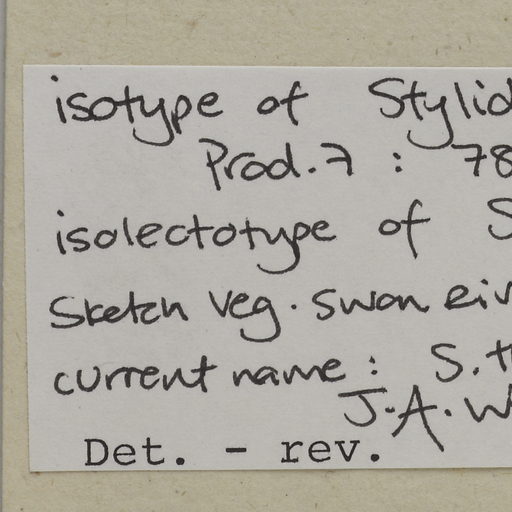 isotype of Stylid
Prod. 7 : 78
isolectotype of S
Sketch Veg. Swan Riv
current name : S. h
J.A. W
Det. - rev.